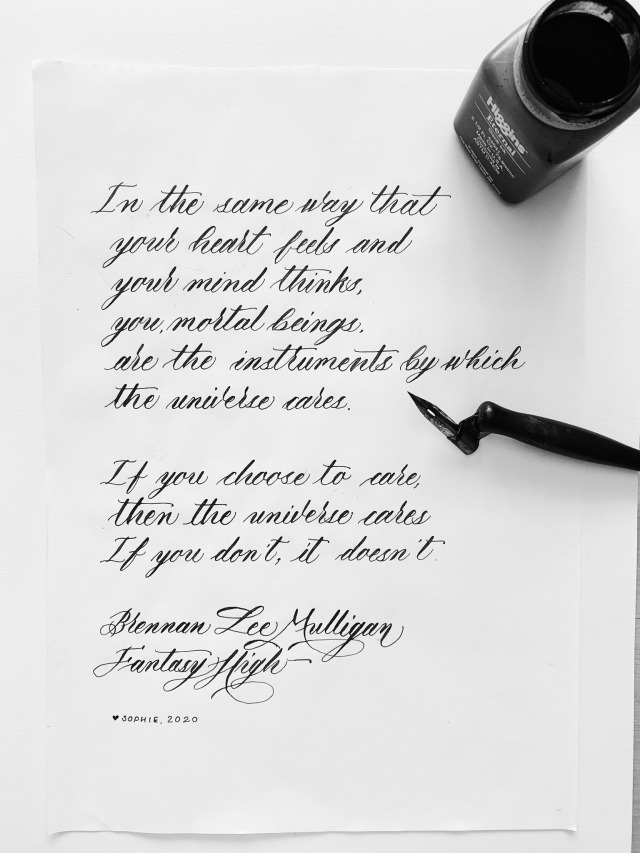 Higgins
Eternal
In the same way that
your heart feels and
your mind thinks,
you, mortal beings,
are the instruments by which
the universe cares.
If you choose to care,
then the universe cares
If you don't, it doesn't.
Brennan Lee Mulligan
Fantasy High
♥ SOPHIE, 2020